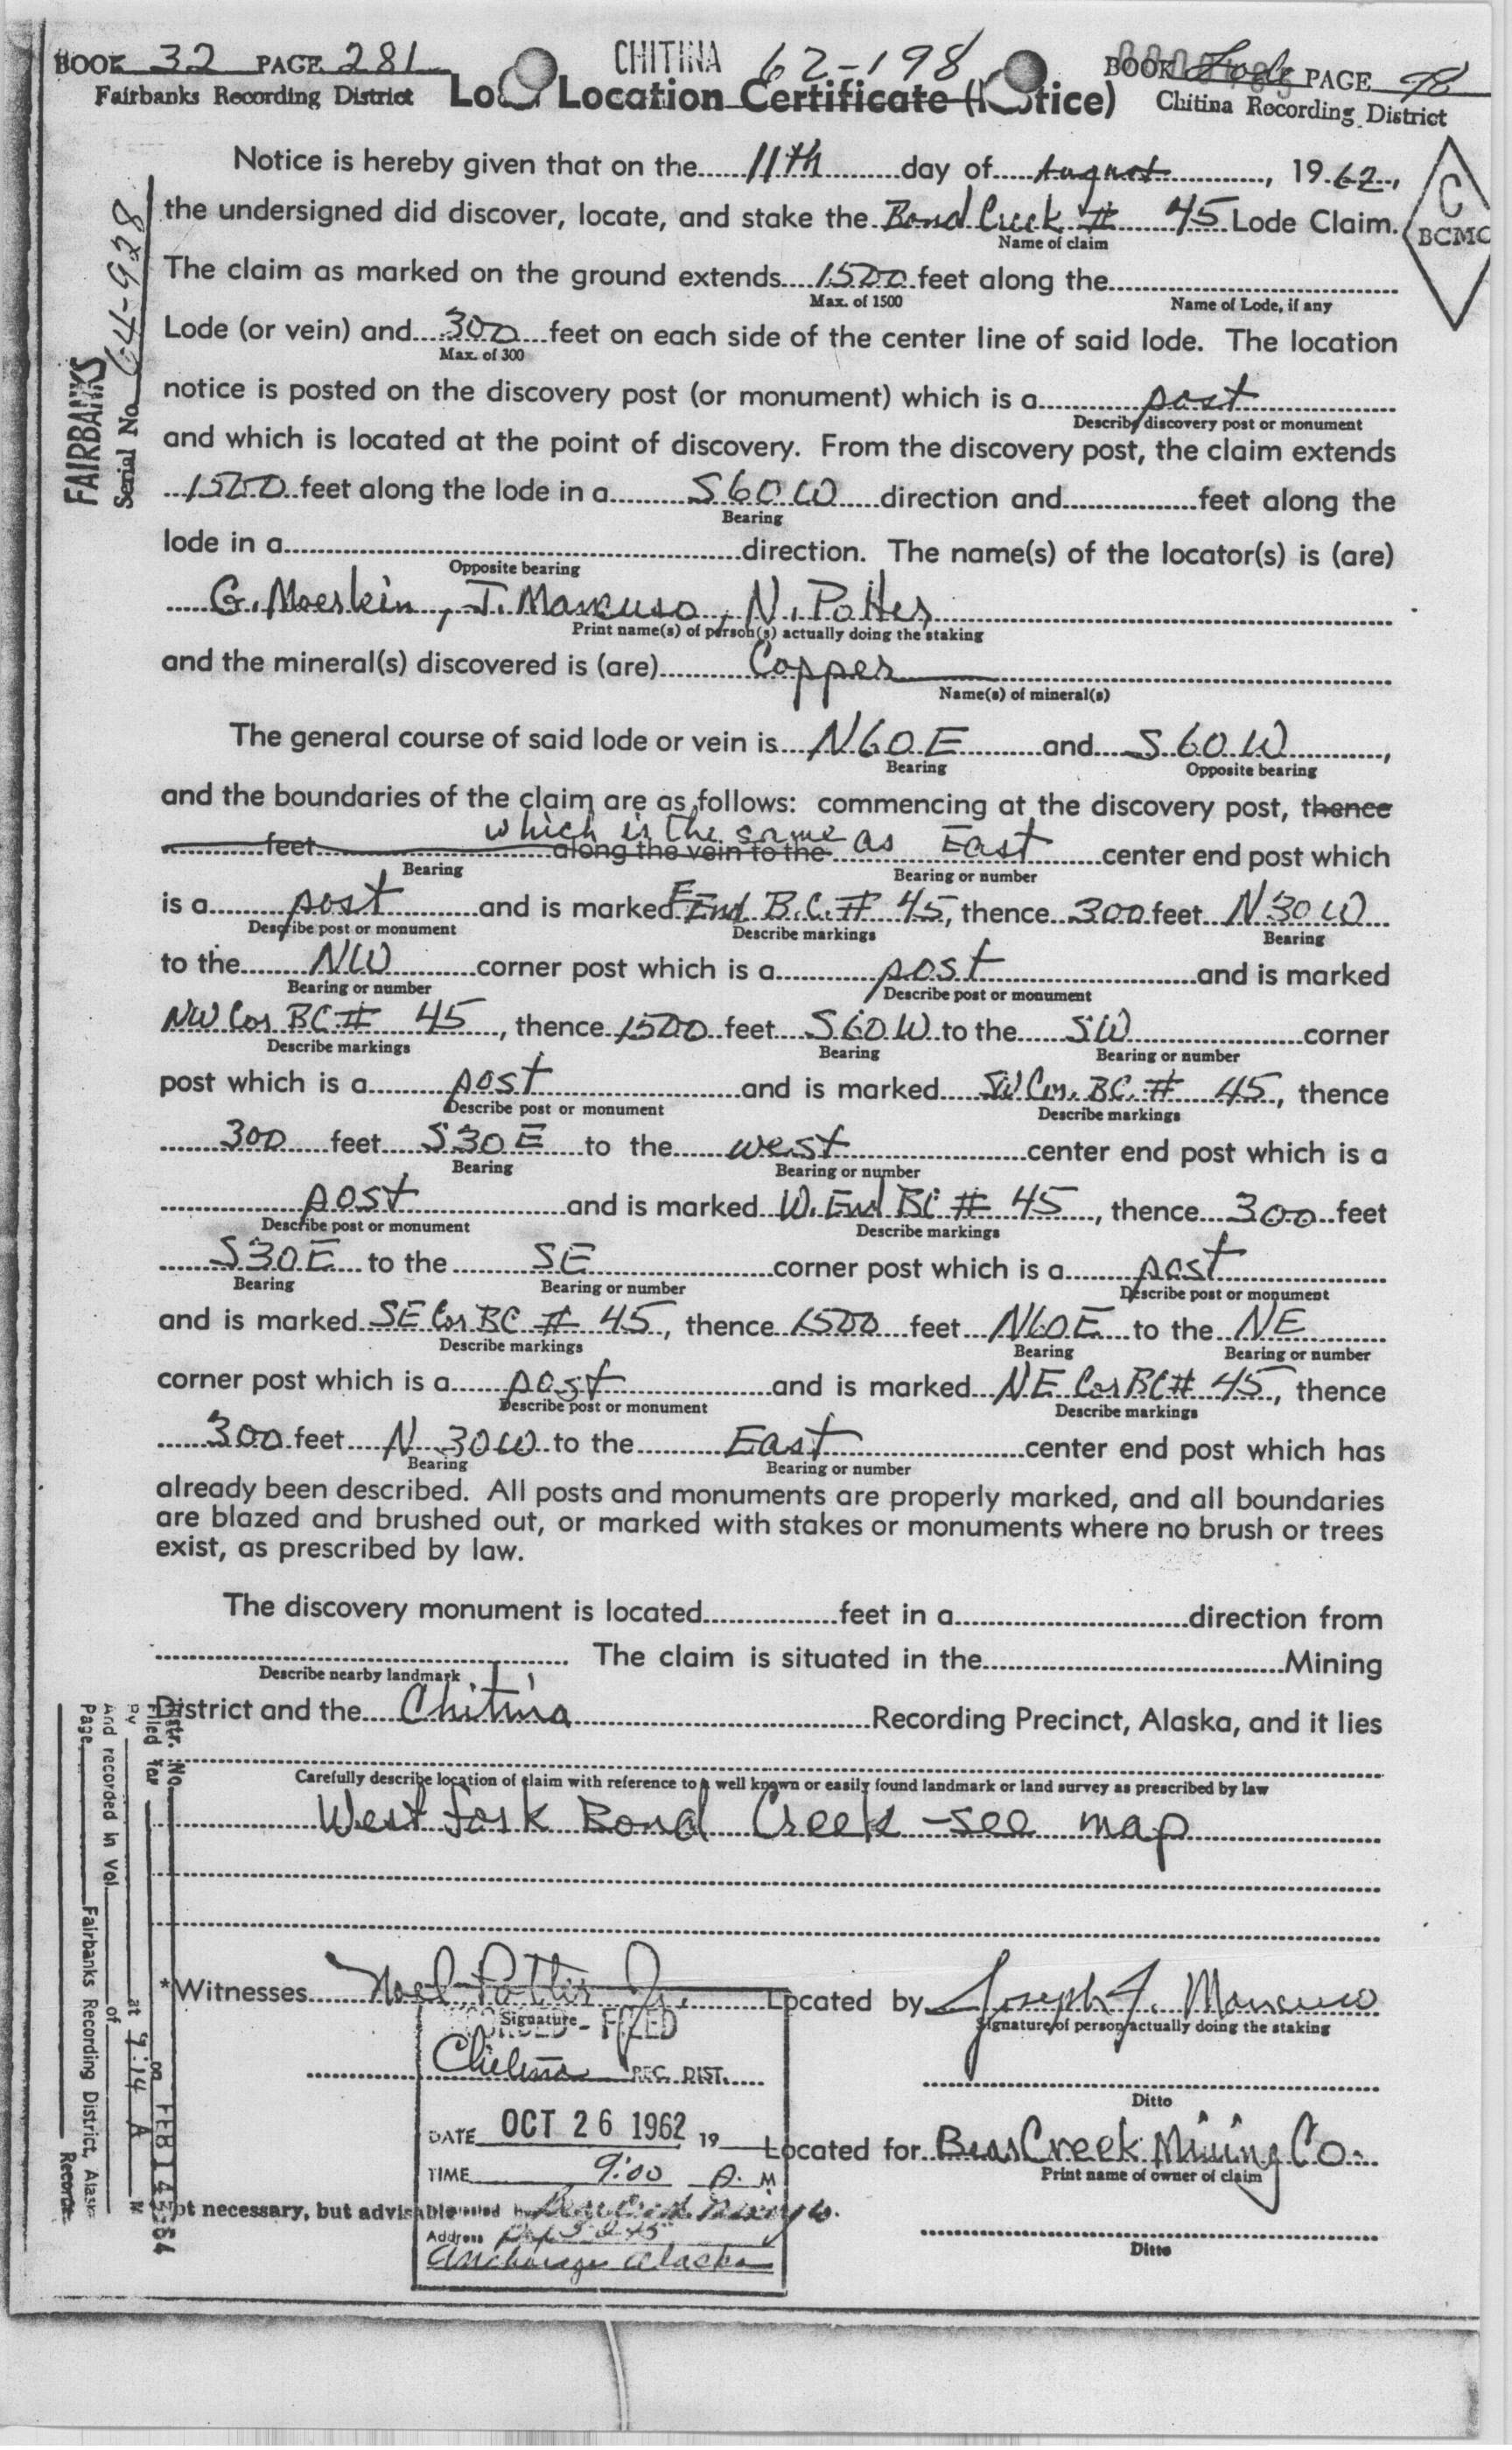 BOOK 32 PAGE 281
Fairbanks Recording District
CHITINA 62-198
BOOK Lode PAGE 98
Chitina Recording District
Location Certificate
Notice is hereby given that on the 11th day of August, 1962,
the undersigned did discover, locate, and stake the Bond Creek # 45 Lode Claim.
Name of claim
C
BCMC
The claim as marked on the ground extends 1500 feet along the
Max. of 1500 Name of Lode, if any
Lode (or vein) and 300 feet on each side of the center line of said lode. The location
Max. of 300
notice is posted on the discovery post (or monument) which is a post
Describe discovery post or monument
and which is located at the point of discovery. From the discovery post, the claim extends
1500 feet along the lode in a S60W direction and feet along the
Bearing
lode in a direction. The name(s) of the locator(s) is (are)
Opposite bearing
G. Moerlein, J. Mancuso, N. Potter
Print name(s) of person(s) actually doing the staking
and the mineral(s) discovered is (are) Copper
Name(s) of mineral(s)
The general course of said lode or vein is N60E and S60W,
Bearing Opposite bearing
and the boundaries of the claim are as follows: commencing at the discovery post, thence
which is the same as
feet along the vein to the East center end post which
Bearing Bearing or number
is a post and is marked E End B.C. # 45, thence 300 feet N30W
Describe post or monument Describe markings Bearing
to the NW corner post which is a post and is marked
Bearing or number Describe post or monument
NW Cor BC # 45, thence 1500 feet S60W to the SW corner
Describe markings Bearing Bearing or number
post which is a post and is marked SW Cor. BC. # 45, thence
Describe post or monument Describe markings
300 feet S30E to the west center end post which is a
Bearing Bearing or number
post and is marked W. End BC # 45, thence 300 feet
Describe post or monument Describe markings
S30E to the SE corner post which is a post
Bearing Bearing or number Describe post or monument
and is marked SE Cor BC # 45, thence 1500 feet N60E to the NE
Describe markings Bearing Bearing or number
corner post which is a post and is marked NE Cor BC# 45, thence
Describe post or monument Describe markings
300 feet N 30W to the East center end post which has
Bearing Bearing or number
already been described. All posts and monuments are properly marked, and all boundaries
are blazed and brushed out, or marked with stakes or monuments where no brush or trees
exist, as prescribed by law.
The discovery monument is located feet in a direction from
The claim is situated in the Mining
Describe nearby landmark
District and the Chitina Recording Precinct, Alaska, and it lies
Carefully describe location of claim with reference to a well known or easily found landmark or land survey as prescribed by law
West fork Bond Creek - see map
*Witnesses Noel Potter Jr. Located by Joseph J. Mancuso
Signature Signature of person actually doing the staking
FILED
Chitina REC. DIST.
Ditto
DATE OCT 26 1962 19
Located for Bear Creek Mining Co.
Print name of owner of claim
TIME 9:00 A. M
not necessary, but advisable
Bear Creek Mining Co.
Address
Anchorage Alaska
Ditto
FAIRBANKS
Serial No. 64-928
Instr. No.
Filed for
on FEB 14 '64
By at 9:14 A M
And recorded in Vol. of
Page Fairbanks Recording District, Alaska
Recorder